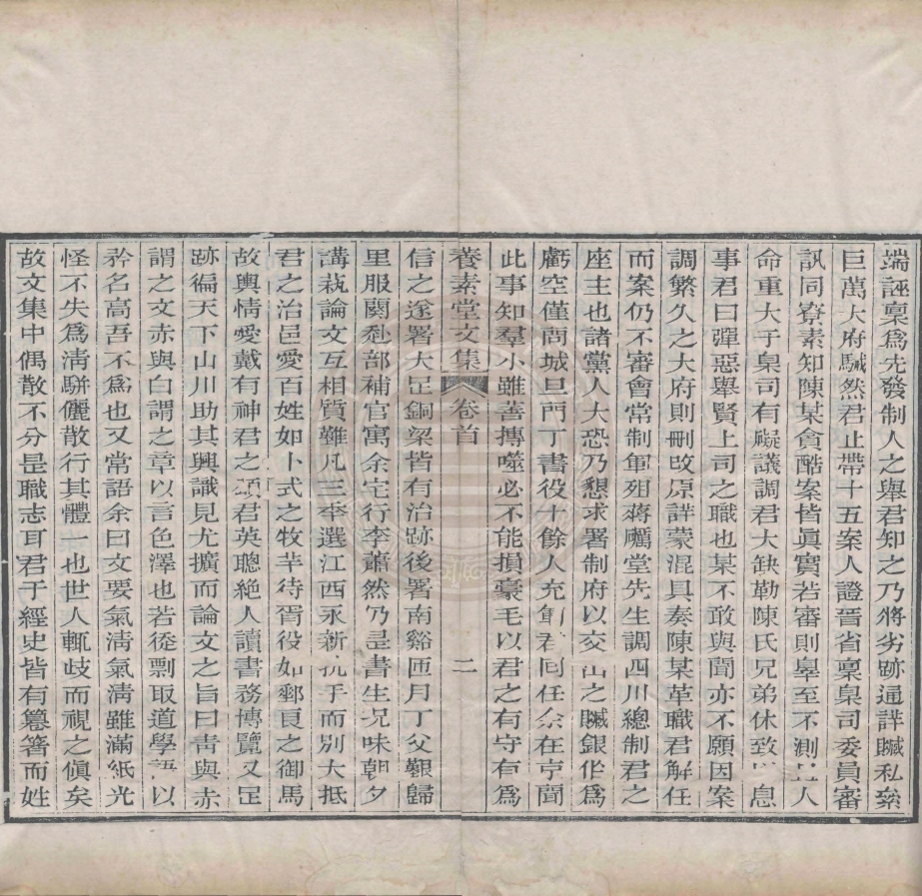 端誣稟爲先發制人之舉君知之乃將劣跡通詳贓私纍
巨萬大府駴然君止帶十五案人證晉省稟臬司委員審
訊同寮素知陳某貪酷案皆眞實若審則辠至不測以人
命重大于臬司有礙議調君大缺勒陳氏兄弟休致以息
事君曰彈惡舉賢上司之職也某不敢與聞亦不願因案
調繁久之大府則刪改原詳蒙混具奏陳某革職君解任
而案仍不審會常制軍殂蔣礪堂先生調四川總制君之
座主也諸黨人大恐乃懇求署制府以交出之贓銀作爲
虧空僅問城旦門丁書役十餘人充軍君回任余在京聞
此事知羣小雖善摶噬必不能損豪毛以君之有守有爲
養素堂文集 卷首 二
信之遂署大足銅梁皆有治跡後署南谿匝月丁父艱歸
里服闋赴部補官寓余宅行李蕭然仍是書生況味朝夕
講埶論文互相質難凡三秊選江西永新抗手而別大抵
君之治邑愛百姓如卜式之牧羊待胥役如郵良之御馬
故輿情愛戴有神君之頌君英聰絶人讀書務博覽又足
跡徧天下山川助其興識見尤擴而論文之旨曰靑與赤
謂之文赤與白謂之章以言色澤也若從剽取道學語以
矜名高吾不爲也又常語余曰文要氣淸氣淸雖滿紙光
怪不失爲淸駢儷散行其體一也世人輒歧而視之傎矣
故文集中偶散不分是職志耳君于經史皆有籑箸而姓